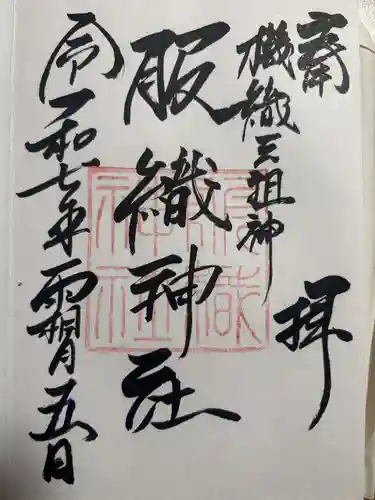 拝
機織天祖神
服織神社
令和七年霜月五日
服織
神社